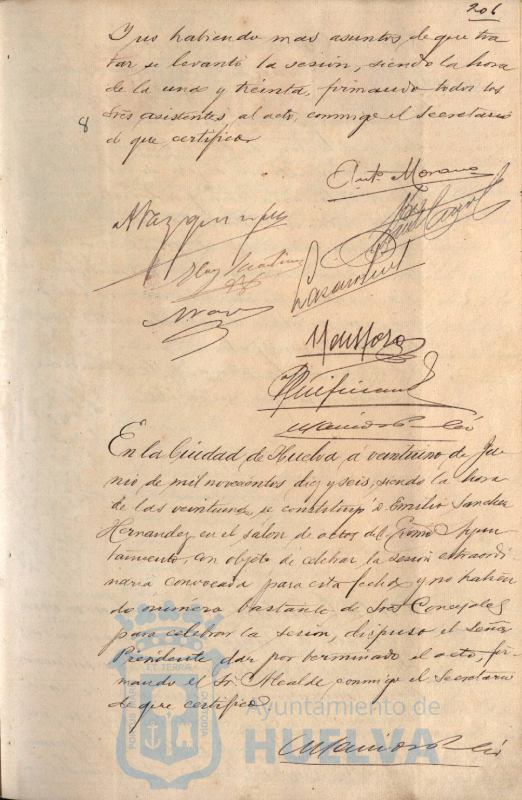 206
Y no habiendo mas asuntos de que tra
tar se levantó la sesión, siendo la hora
de la una y treinta, firmando todos los
Sres asistentes al acto, conmigo el Secretario
de que certifico
8
Antº Moreno
En la Ciudad de Huelva á veintiuno de Ju
nio de mil novecientos diez y seis, siendo la hora
de las veintiuna, se constituyó D Emilio Sanchez
Hernandez en el salon de actos del Excmo Ayun
tamiento, con objeto de celebrar la sesión extraordi
naria convocada para esta fecha y no habien
do número bastante de Sres Concejales
para celebrar la sesión, dispuso el Señor
Presidente dar por terminado el acto, fir
mando el Sr. Alcalde conmigo el Secretario
de que certifico
Ayuntamiento de
HUELVA